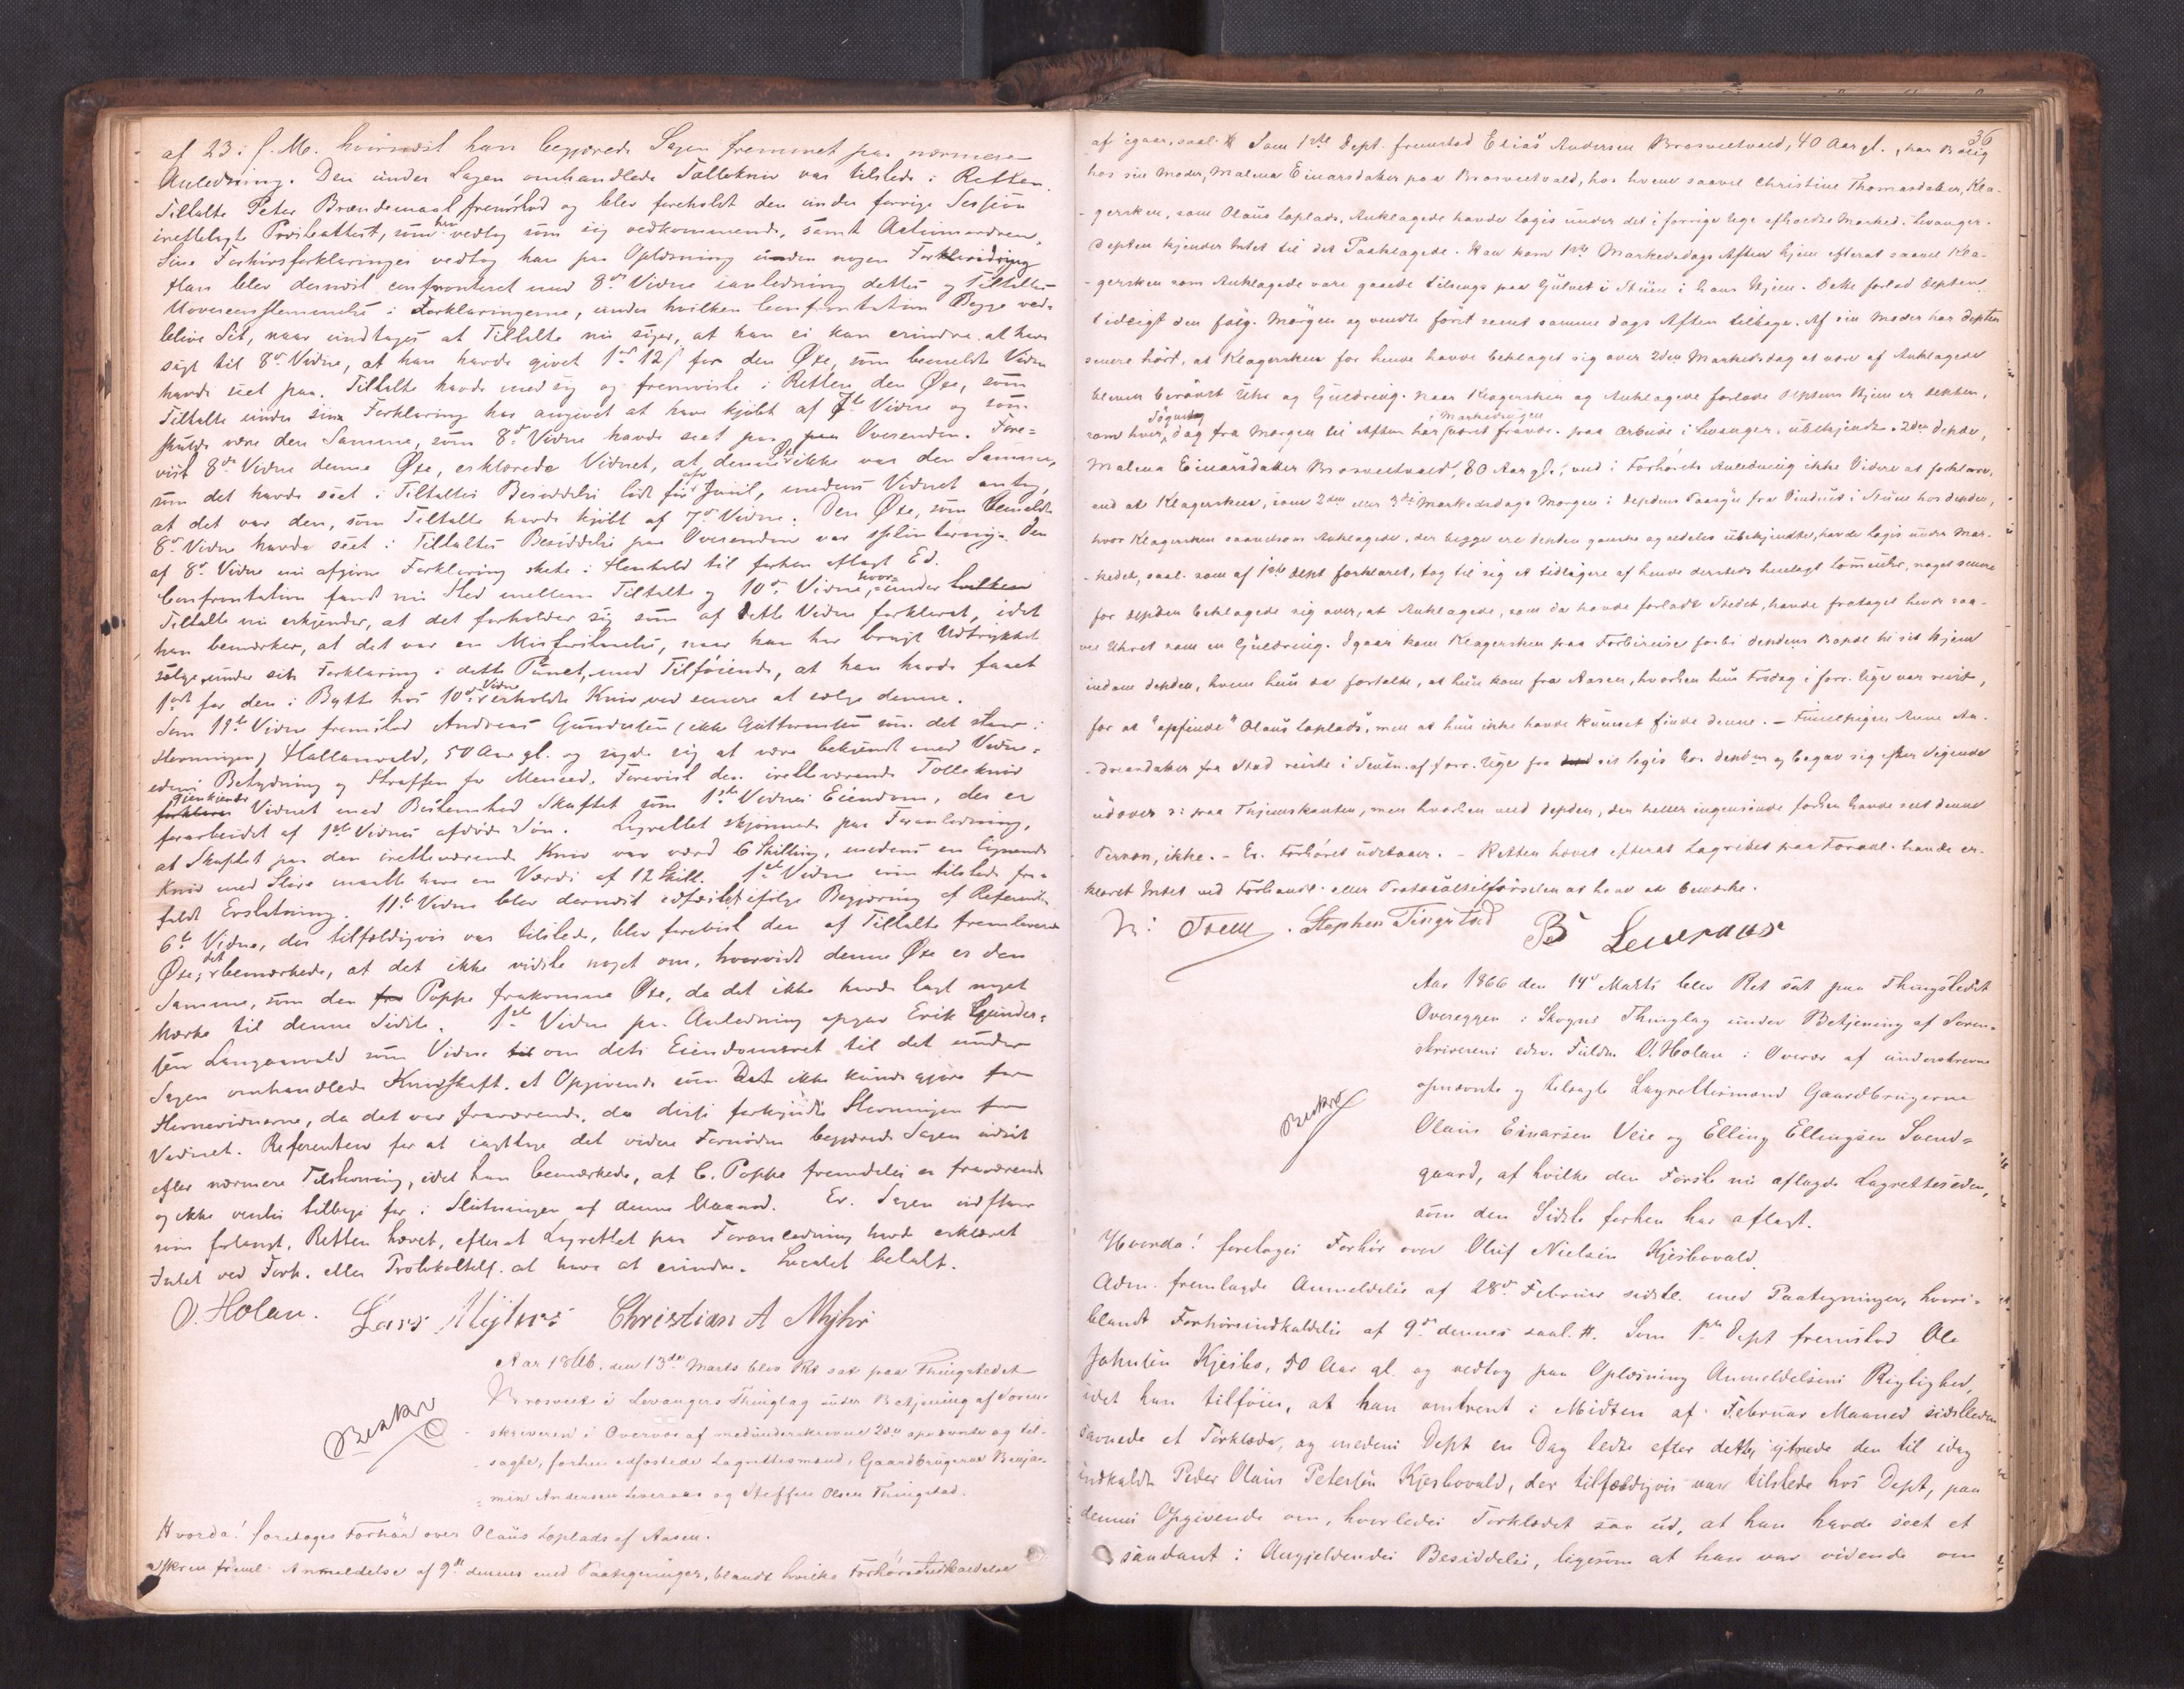 af 23: f. M. hvornæst han begjærede Sagen fremmet paa nærmere
Anledning. Den under Sagen omhandlede Tollekniv var tilstede i Retten.
Tiltalte Peter Brændemoal fremstod og blev foreholdt den under forrige Session
irettelagte Præsteattest, som han vedtog som sig vedkommende, samt Actionsordren.
Sine Forhørsforklaringer vedtog han paa Oplæsning uden nogen Forklaring
Han blev dernæst confronteret med 8de Vidne ianledning dettes og Tiltaltes
Uoverensstemmelse i Forklaringerne, under hvilken Confrontation Begge ved-
bleve Sit, naar undtages at Tiltalte nu siger, at han ei kan erindre at have
sagt til 8de Vidne, at han havde givet 1 ort 12 s for den Øxe, som bemeldte Vidne
havde seet paa. Tiltalte havde med sig og fremviste i Retten den Øxe, som
Tiltalte under sin Forklaring har angivet at have kjøbt af 7de Vidne og som
skulde være den Samme, som 8de Vidne havde seet paa Overenden. Fore-
vist 8de Vidne denne Øxe, erklærede Vidnet, at denne Øxe ikke var den Samme,
som det havde seet i Tiltaltes Besiddelse lidt før Juul, medens Vidnet antog,
at det var den, som Tiltalte havde kjøbt af 7de Vidne. Den Øxe, som bemeldte
8de Vidne havde seet i Tiltaltes Besiddelse paa Overenden var splinterny. Den
af 8de Vidne nu afgivne Forklaring skete i Henhold til forhen aflagt Ed.
Confrontation fandt nu Sted mellem Tiltalte og 10de Vidne, hvorunder
Tiltalte nu erkjender, at det forholder sig som af dette Vidne forklaret, idet
han bemærker, at det var en Misforstaaelse, naar han har brugt Udtrykket
sælge under sin Forklaring i dette Punct, med Tilføiende, at han havde faaet
1 ort for den i Bytte hos 10de Vidne erholdte Kniv ved senere at sælge denne.
Som 11te Vidne fremstod Andreas Gundersen (ikke Guttormsen som det staar i
Stevningen) Hallanvald, 50 Aar gl. og sagde sig at være bekjendt med Vidne-
edens Betydning og Straffen for Meneed. Forevist den iretteværende Tollekniv
gjenkjendte Vidnet med Bestemthed Skaftet som 1ste Vidnes Eiendom, der er
forarbeidet af 1ste Vidnes afdøde Søn. Lagrettet skjønnede paa Foranledning,
at Skaftet paa den iretteværende Kniv var værd 6 Skilling, medens en lignende
Kniv med Slire maatte have en Værdi af 12 Skill. 1ste Vidne som tilstede fra-
faldt Erstatning. 11te Vidne blev dernæst edfæstet ifølge Begjæring af Referenten.
6te Vidne, der tilfældigvis var tilstede, blev forevist den af Tiltalte fremleverede
Øxe; det bemærkede, at det ikke vidste noget om, hvorvidt denne Øxe er den
Samme, som den Poppe frakomne Øxe, da det ikke havde lagt noget
Mærke til denne Sidste. 1ste Vidne paa Anledning opgav Erik Gunder-
sen Langaanvald som Vidne om dets Eiendomsret til det under
Sagen omhandlede Knivskaft, et Opgivende som Det ikke kunde gjøre for
Stevnevidnerne, da det var fraværende, da disse forkyndte Stevningen for
Vidnet. Referenten for at iagttage det videre Fornødne begjærede Sagen udsat
efter nærmere Tilstevning, idet han bemærkede, at C. Poppe fremdeles er fraværende
og ikke ventes tilbage før i Slutningen af denne Maaned. Er. Sagen udstaar
som forlangt. Retten hævet, efterat Lagrettet paa Foranledning havde erklæret
Intet ved Forh. eller Protokoltilf. at have at erindre. Localet betalt.
O. Holan. Lars Myhres Christian A Myhr
Aar 1866. den 13de Marts blev Ret sat paa Thingstedet
Brosveet i Levangers Thinglag under Betjening af Soren-
skriveren i Overvær af medunderskrevne 2de opnævnte og til-
sagte, forhen edfæstede Lagrettesmænd, Gaardbrugerne Benja-
min Andersen Leveraas og Steffen Olsen Thingstad.
Beskr
Hvorda! foretoges Forhør over Olaus Loplads af Aasen.
Skrev freml. Anmeldelse af 9de dennes med Paategninger, blandt hvilke Forhørsindkaldelse
36
af igaar, saal. # Som 1ste Dept. fremstod Elias Andersen Brosveetvald, 40 Aar gl., har Bolig
hos sin Moder, Malena Einarsdatter paa Brosveetvald, hos hvem saavel Christine Thomasdatter, Kla-
gersken, som Olaus Loplads, Anklagede havde Logis under det i forrige Uge afholdte Marked i Levanger.
Depten kjender Intet til det Paaklagede. Han kom 1ste Markedsdags Aften hjem efterat saavel Kla-
gersken som Anklagede vare gaaede tilsengs paa Gulvet i Stuen i hans Hjem. Dette forlod Depten
tidligt den følg. Morgen og vendte først seent samme Dags Aften tilbage. Af sin Moder har Depten
senere hørt, at Klagersken for hende havde beklaget sig over 2den Markedsdag at være af Anklagede
bleven berøvet Uhr og Guldring. Naar Klagersken og Anklagede forlode Deptens Hjem er Depten,
som hver Søgnedag fra Morgen til Aften har i Markedsugen været fravær. paa Arbeide i Levanger, ubekjendt. 2den Depten,
Malena Einarsdatter Brosveetvald, 80 Aar gl., ved i Forhørets Anledning ikke Videre at forklare,
end at Klagersken, som 2den eller 3die Markedsdags Morgen i Deptens Paasyn fra Vinduet i Stuen hos Depten,
hvor Klagersken saavelsom Anklagede, der begge ere Depten ganske og aldeles ubekjendte, havde Logis under Mar-
kedet, saal. som af 1ste Dept forklaret, tog til sig et tidligere af hende dersteds henlagt Lommeuhr, noget senere
for Depten beklagede sig over, at Anklagede, som da havde forladt Stedet, havde frataget hende saa-
vel Uhret som en Guldring. Igaar kom Klagersken paa Forbireise forbi Deptens Bopæl hid sit Hjem
indom Depten, hvem hun da fortalte, at hun kom fra Aasen, hvorhen hun Fredag i forr. Uge var reist,
for at "opfinde" Olaus Loplads, men at hun ikke havde kunnet finde denne. – Anne An-
dreasdatter fra Stad reiste i Slutn. af forr. Uge fra sit Logis hos Depten og begav sig efter Sigende
udover o: paa Thjemskanten, men hvorhen veed Depten, der heller ingensinde forhen havde seet denne
Person, ikke. – Er. Forhøret udstaaer. – Retten hævet efterat Lagrettet paa Foranl. havde er-
klæret Intet ved Forhandl. eller Protocoltilførselen at have at bemærke.
Stephen Tingstad B Leveraas
Aar 1866 den 14de Marts blev Ret sat paa Thingstedet
Overeggen i Skogns Thinglag under Betjening af Soren-
skriverens edsv. Fuldm. O. Holan i Overvær af underskrevne
opnævnte og tilsagte Lagrettesmænd Gaardbrugerne
Olaus Einarsen Veie og Elling Ellingsen Svend-
gaard, af hvilke den Første nu aflagde Lagretteseden,
som den Sidste forhen har aflagt.
Beskr
Hvorda! foretoges Forhør over Oluf Nielsen Kjesbovald.
Adm. fremlagde Anmeldelse af 28de Februar sidstl. med Paategninger, hvori-
blandt Forhørsindkaldelse af 9de dennes saal. #. Som 1ste Dept fremstod Ole
Johnsen Kjesbo, 50 Aar gl. og vedtog paa Oplæsning Anmeldelsens Rigtighed,
idet han tilføier, at han omtrent i Midten af Februar Maaned sidstleden
savnede et Tørklæde, og medens Dept en Dag ledte efter dette, ytrede den til idag
indkaldte Peder Olaus Petersen Kjesbovald, der tilfældigvis var tilstede hos Dept, paa
dennes Opgivende om, hvorledes Tørklædet saa ud, at han havde seet et
saadant i Angjeldendes Besiddelse, ligesom at han var vidende om